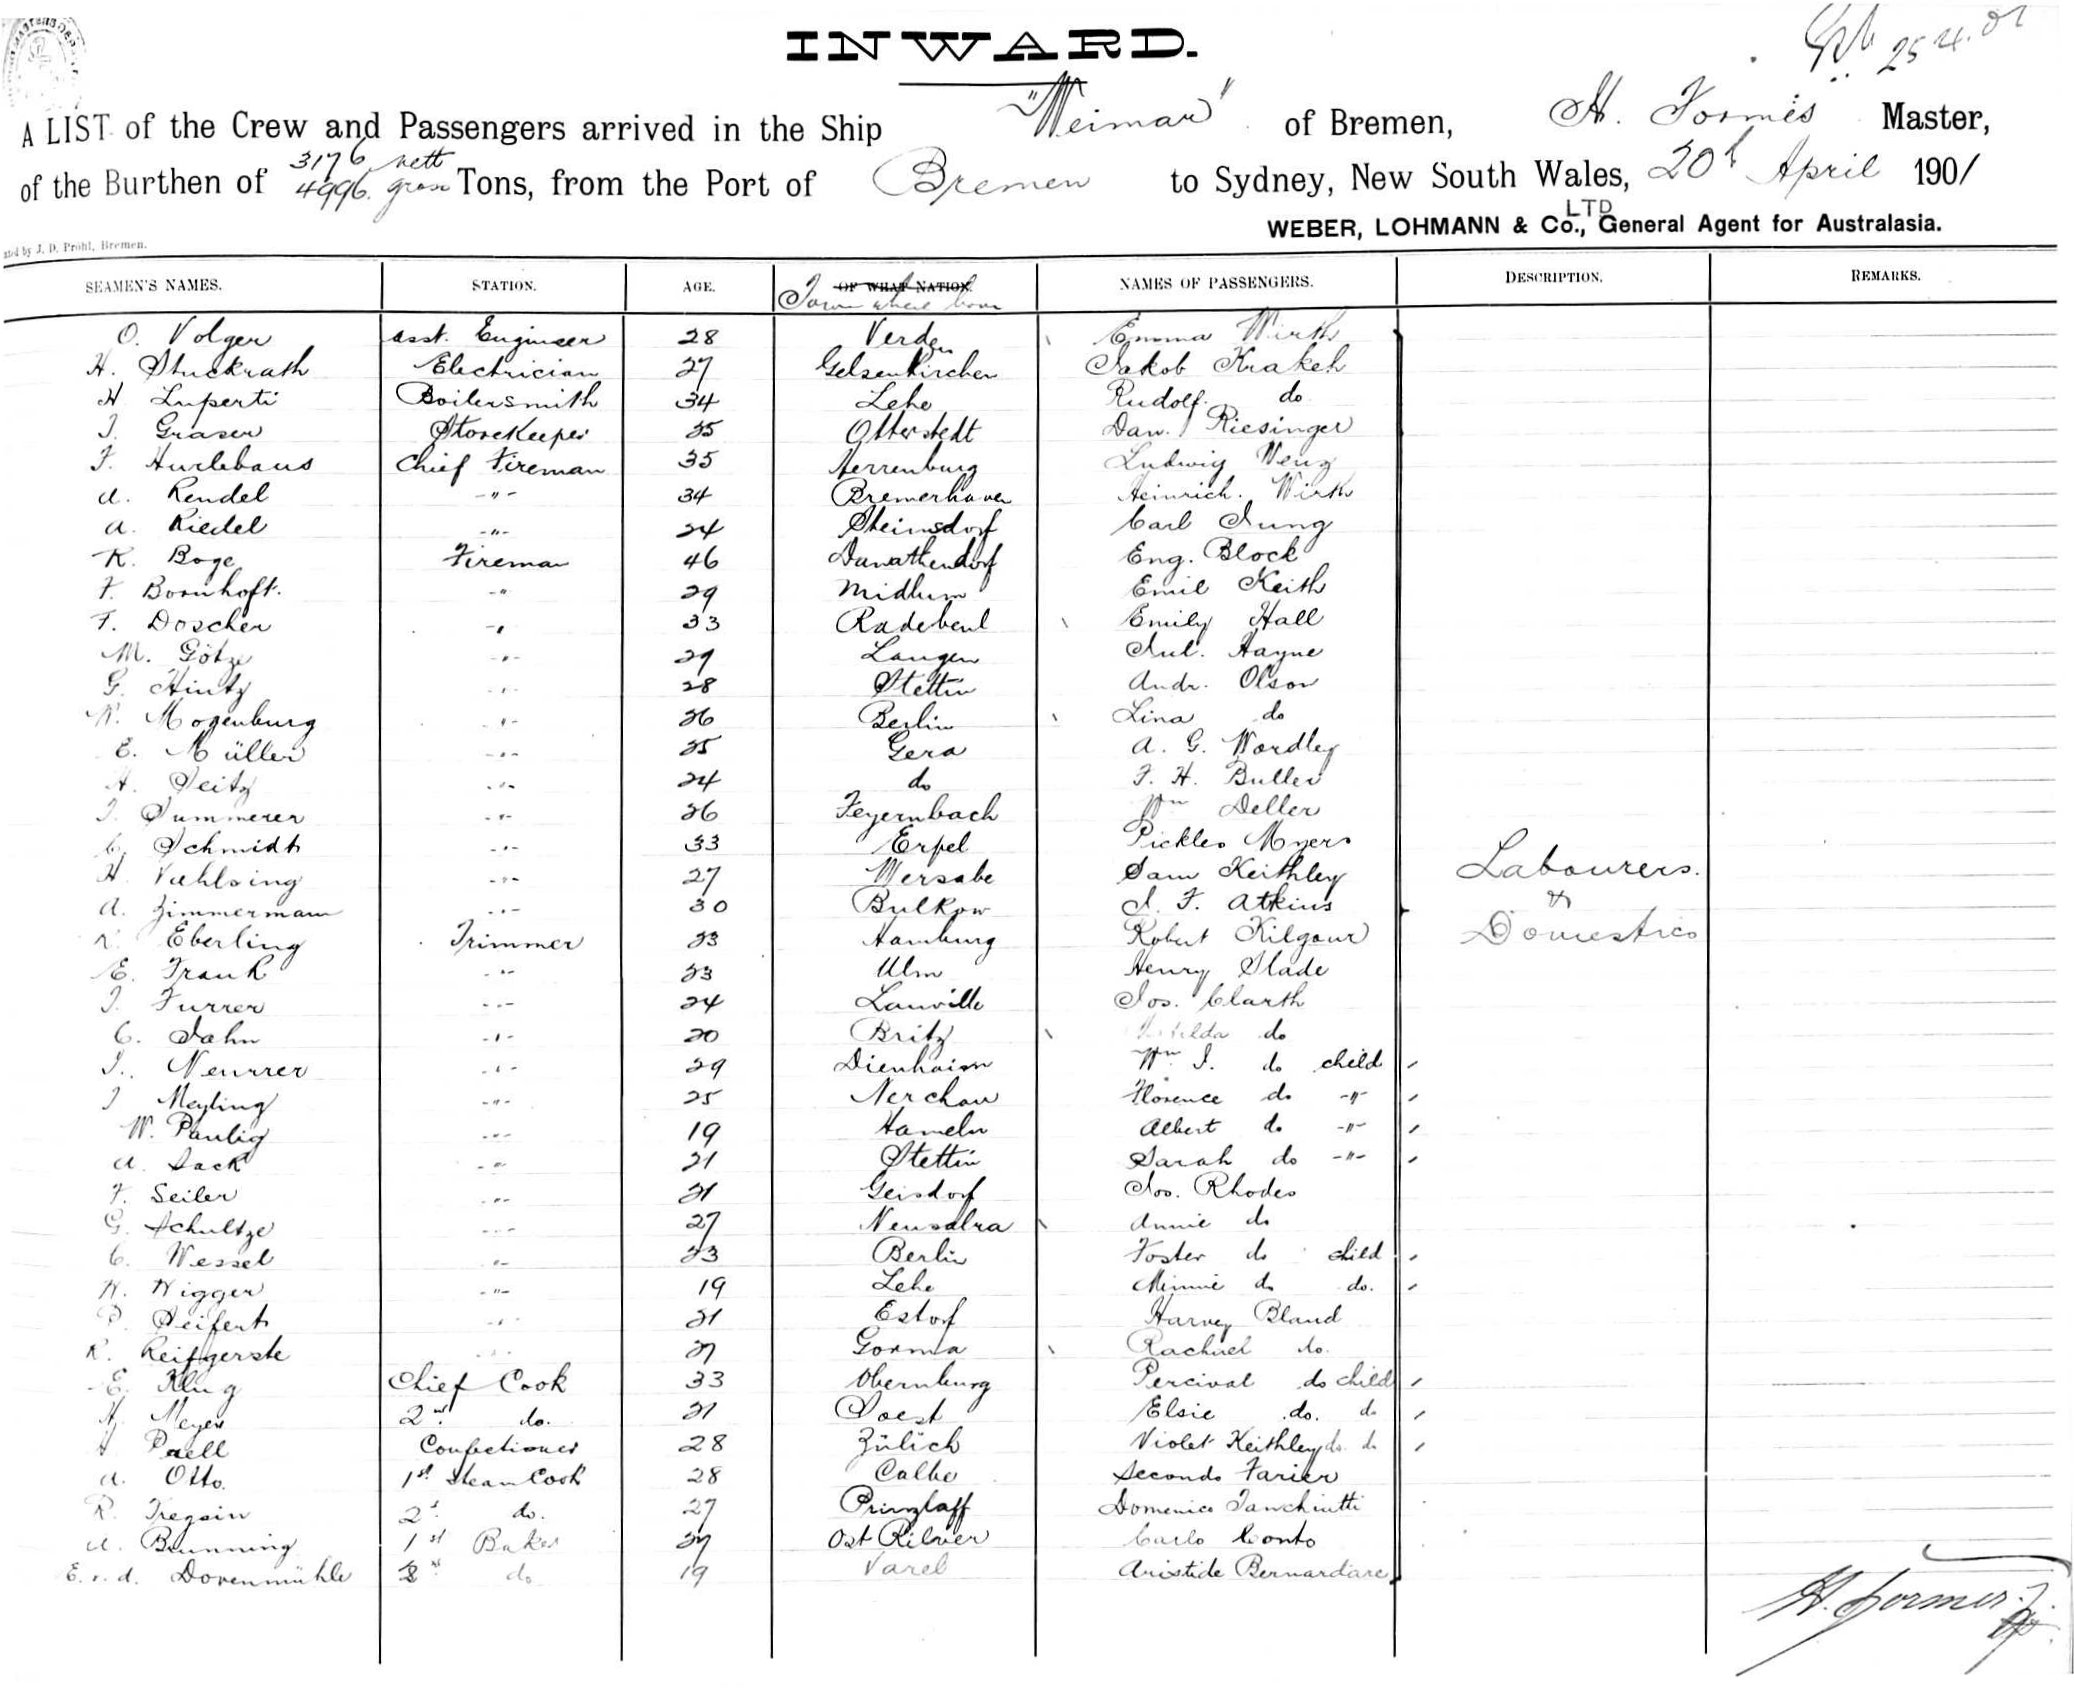 INWARD.
25 4. 01
A LIST of the Crew and Passengers arrived in the Ship "Weimar" of Bremen, H. Formes Master,
3176 nett
of the Burthen of 4996. gross Tons, from the Port of Bremen to Sydney, New South Wales, 20t April 1901
LTD
WEBER, LOHMANN & Co., General Agent for Australasia.
by J. D. Prohl, Bremen.
SEAMEN'S NAMES. STATION. AGE. OF WHAT NATION. NAMES OF PASSENGERS. DESCRIPTION. REMARKS.
Town where born
O. Volger asst. Engineer 28 Verden Emma Wirth
H. Stuckrath Electrician 27 Gelsenkirchen Jakob Krakeh
H Luperti Boilersmith 34 Lehe Rudolf. do
J. Graser Storekeeper 35 Otterstedt Dan. Riesinger
F. Hurlebaus Chief Fireman 35 Herrenburg Ludwig Wenz
A. Rendel -"- 34 Bremerhaven Heinrich. Wirth
A. Riedel -"- 24 Steinsdorf Carl Jung
K. Boge Fireman 46 Eng. Block
F. Bornhoft. -" 29 Midlum Emil Keith
F. Doscher -" 33 Radebeul Emily Hall
M. Götze -"- 29 Langen Jul. Hayne
G. Hintz -"- 28 Stettin Andr. Olson
Mogenburg -"- 26 Berlin Lina do
E. Müller -"- 25 Gera A. G. Wordley
H. Seitz -"- 24 do F. H. Buller
J. Summerer -"- 26 Feyernbach Wm Deller
C. Schmidt -"- 33 Erpel Pickles Myers
H. Vahlsing -"- 27 Wersabe Sam Keithley Labourers.
A. Zimmermann -"- 30 Bulkow J. F. Atkins &
Eberling Trimmer 23 Hamburg Robert Kilgour Domestics
E. Frank -"- 23 Ulm Henry Slade
J. Furrer -"- 24 Lanville Jos. Clarth
C. Jahn -"- 20 Britz do
J. Neurrer -"- 29 Dienhaim Wm J. do child
J Meyling -"- 25 Nerchau Florence do -"-
W. Paulig -"- 19 Hameln Albert do -"-
A. Sack -"- 21 Stettin Sarah do -"-
F. Seiler -"- 21 Geisdorf Jos. Rhodes
G. Schultze -"- 27 Neusalza Annie do
C. Wessel -"- 23 Berlin Foster do child
W. Wigger -"- 19 Lehe Minnie do do.
P. Seifert -"- 21 Estorf Harvey Bland
K. Reifgerste -"- 27 Gorma Rachael do.
E. Klug Chief Cook 33 Obernburg Percival do child
H. Meyer 2nd do. 21 Soest Elsie do. do
Paell Confectioner 28 Zülich Violet Keithley do. do
A. Otto. 1st Steam Cook 28 Calbe Secondo Farier
R. Tregsin 2d do. 27 Prinzlaff Domenico Tanchiutti
A. Brunning 1st Baker 27 Carlo Conto
E. v. d. Dovenmühle 2nd do 19 Varel Aristide Bernardare
H. Formes.